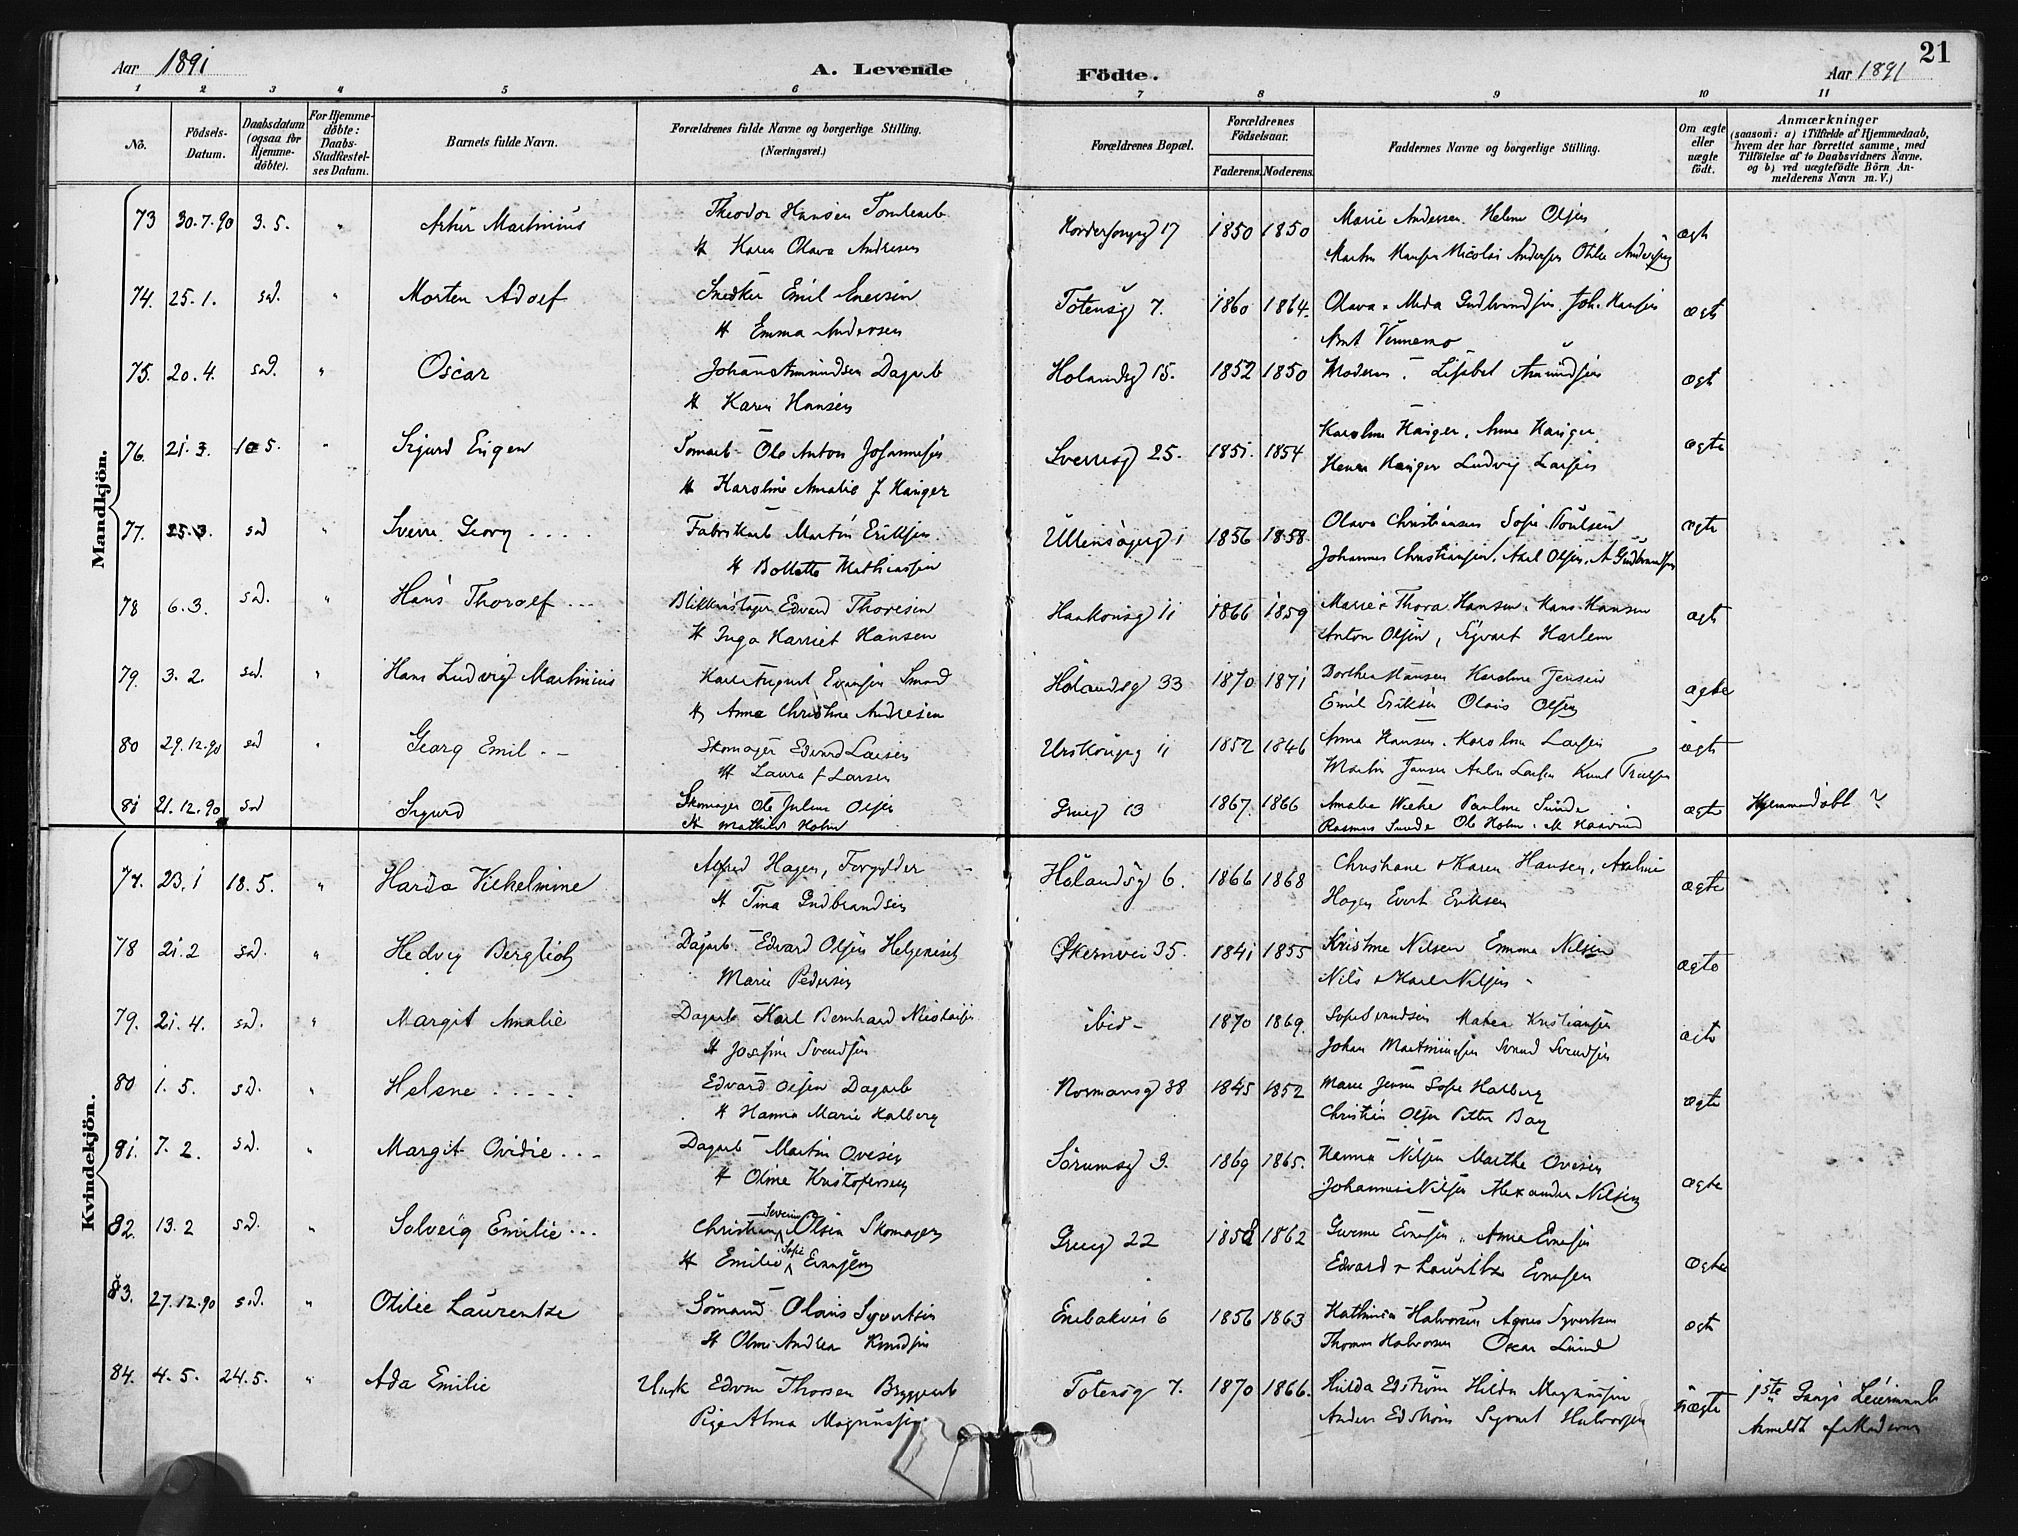 Aar 1891
A. Levende Födte.
Aar 1891
21
1 2 3 4 5 6 7 8 9 10 11
No.
Födsels-Datum.
Daabsdatum (ogsaa for Hjemme-döbte).
For Hjemme-döbte: Daabs-Stadfæstel-ses Datum.
Barnets fulde Navn.
Forældrenes fulde Navne og borgerlige Stilling. (Næringsvei.)
Forældrenes Bopæl.
Forældrenes Födselsaar.
Faderens. Moderens.
Faddernes Navne og borgerlige Stilling.
Om ægte eller uægte födt.
Anmærkninger
(saasom: a) i Tilfælde af Hjemmedaab,
hvem der har forrettet samme, med
Tilföielse af to Daabsvidners Navne.
og b) ved uægtefödte Börn An-
melderens Navn m. V.)
Mandkjön.
73 30.7.90 3.5. " Artur Martinius Theodor Hansen Tomtearb Nordersonsg 17 1850 1850 Marie Andersen. Helene Olsen ægt
H Karen Olava Andresen Martin Hansen Nicolai Andersen Otilie Andersen
74. 25.1. sad. " Morten Adolf Snedker Emil Enersen Totensg 7. 1860 1864. Olava & Meda Gudbrandsen Joh. Hansen ægte
H Emma Andersen Arnt Vennemo
75. 20.4. sad. " Oscar Johan Amundsen Dagarb Holandsg 15. 1852 1850 Moderen. Lisabet Amundsen ægt
H Karen Hansen
76. 21.3. 10.5. " Sigurd Eugen Tomarb Ole Anton Johannesen Sverresg 25. 1851. 1854 Karoline Kaiger, Anna Kaiger ægte
H Karoline Amalie f Kaiger Henri Kaiger Ludvig Larsen
77. 25.3. sad " Sverre Georg .... Fabrikarb Martin Eriksen Ullensagerg 1 1856 1858. Olava Christiansen Sofie Poulsen ægte
H Bollette Mathiassen Johannes Christiansen. Axel Olsen. A Gudbrandsen
78 6.3. sad. " Hans Thorolf ... Blikkenslager Edvard Thoresen Haakonsg 11 1866 1859 Marie & Thora Hansen. Hans Hansen ægt
H Inga Harriet Hansen Anton Olsen, Sigvart Harlem
79. 3.2. sad. " Hans Ludvig Martinius Karl August Evensen Smed Hölandsg 33 1870 1871 Dorthea Hansen Karoline Jensen ægte
H Anna Christine Andresen Emil Eriksen Olaus Olsen
80 29.12.90 sad " Georg Emil .- Skomager Edvard Larsen Urskougsg 11 1852 1846 Anna Hansen. Karoline Larsen ægte
H Laura f Larsen Martin Jansen Anton Larsen Knut
81 21.12.90 sad Sigurd Skomager Ole Julius Olsen Grueg 13 1867. 1866 Amalie Wiche Pauline Sunde ægte Hjemmedöbt ?
H Mathilde Holm Rasmus Sunde Ole Holm. M
Kvindekjön.
77. 23.1 18.5. " Harda Vilhelmine Alfred Hagen, Forgylder Hölandsg 6. 1866 1868 Christiane & Karen Hansen, Axeline ægte
H Tina Gudbrandsen Hagen Evert Eriksen
78 21.2 sad. " Hedvig Bergliot Dagarb Edvard Olsen Økernvei 35. 1841 1855 Kristine Nilsen Emma Nilsen ægte
Marie Pedersen Nils & Karl Nilsen
79. 21.4. sad. " Margit Amalie Dagarb Karl Bernhard ibid- 1870 1869. Sofie Svendsen Matea Kristiansen ægte
H Josefine Svendsen Johan Martiniusen Svend Svendsen
80 1.5. sad. " Helene ..... Edvard Olsen Dagarb Normansg 38 1845 1852 Marie Jensen Sofie Halberg ægte
H Hanna Marie Halberg Christian Olsen Petter Bay
81. 7.2. sad. " Margit Ovidie ... Dagarb Martin Ovesen Sörumsg 3. 1869 1865. Hanna Nilsen Marthe Ovesen ægte
H Oline Kristofersen Johannes Nilsen Alexander Nilsen
82. 13.2 sad. " Solveig Emilie ... Christian Severin Olsen Skomager Grueg 22 1858 1862 Evensen, Anna Evensen ægte
H Emilie Sofie Evensen Edvard & Lauritz Evensen
83. 27.12.90 sad. " Otilie Laurentze Sömand Olaus Syvertsen Enebakvei 6 1856 1863 Kathinka Halvorsen Agnes Syvertsen ægte
H Oline Andrea Knudsen Thomas Halvorsen Oscar Lund
84. 4.5. 24.5. " Ada Emilie Ungk Edvin Thorsen Bryggearb Totensg 7. 1870 1866. Hulda Edström Hilda Magnussen uægte 1ste Gangs Leiermaal
Pige Alma Magnussen Anders Edström Sigvart Halvorsen Anmeldt af Moderen